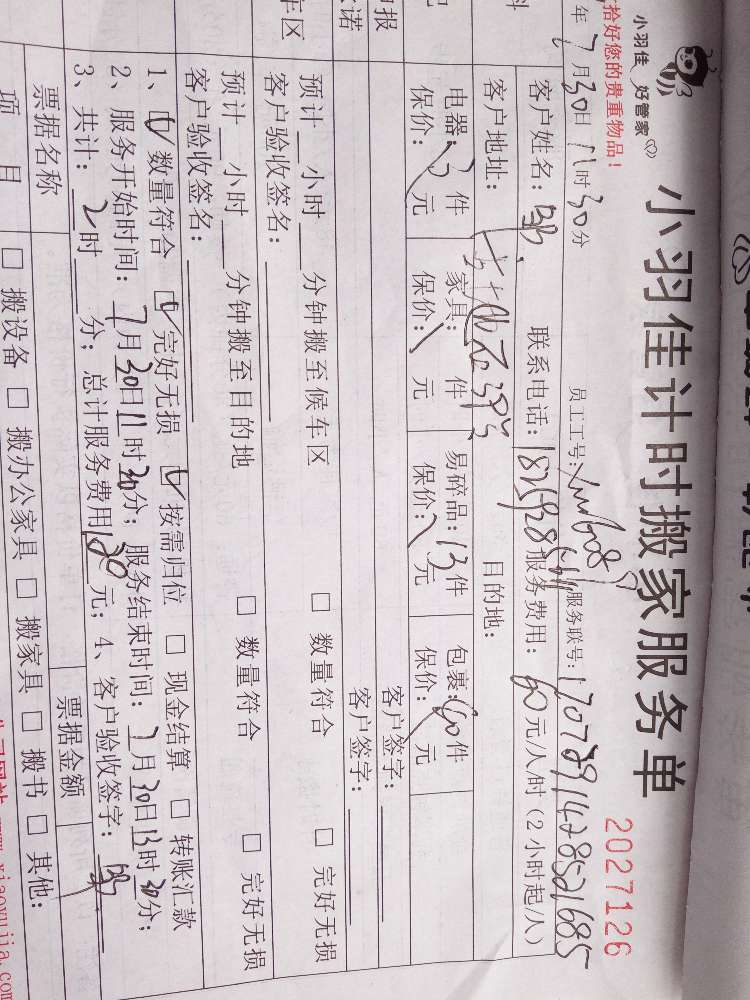 小羽佳 好管家
小羽佳计时搬家服务单
拾好您的贵重物品！
2027126
年 7月30日 11时30分 员工工号： 服务联号：170729142852168 5
客户姓名： 联系电话： 服务费用：60元/人/时（2小时起/人）
客户地址： 目的地：
电器：3件 家具： 件 易碎品：13件 包裹：60件
保价： 元 保价： 元 保价： 元 保价： 元
客户签字：
客户签字：
预计 小时 分钟搬至候车区 □ 数量符合 □ 完好无损
客户验收签名：
预计 小时 分钟搬至目的地 □ 数量符合 □ 完好无损
客户验收签名：
1、☑ 数量符合 ☑ 完好无损 ☑ 按需归位 □ 现金结算 □ 转账汇款
2、服务开始时间：7月30日11时30分；服务结束时间：7月30日13时30分；
3、共计：2时 分；总计服务费用 元；4、客户验收签字：
票据名称 票据金额
项 目 □ 搬设备 □ 搬办公家具 □ 搬家具 □ 搬书 □ 其他：
www.xiaoyujia.com